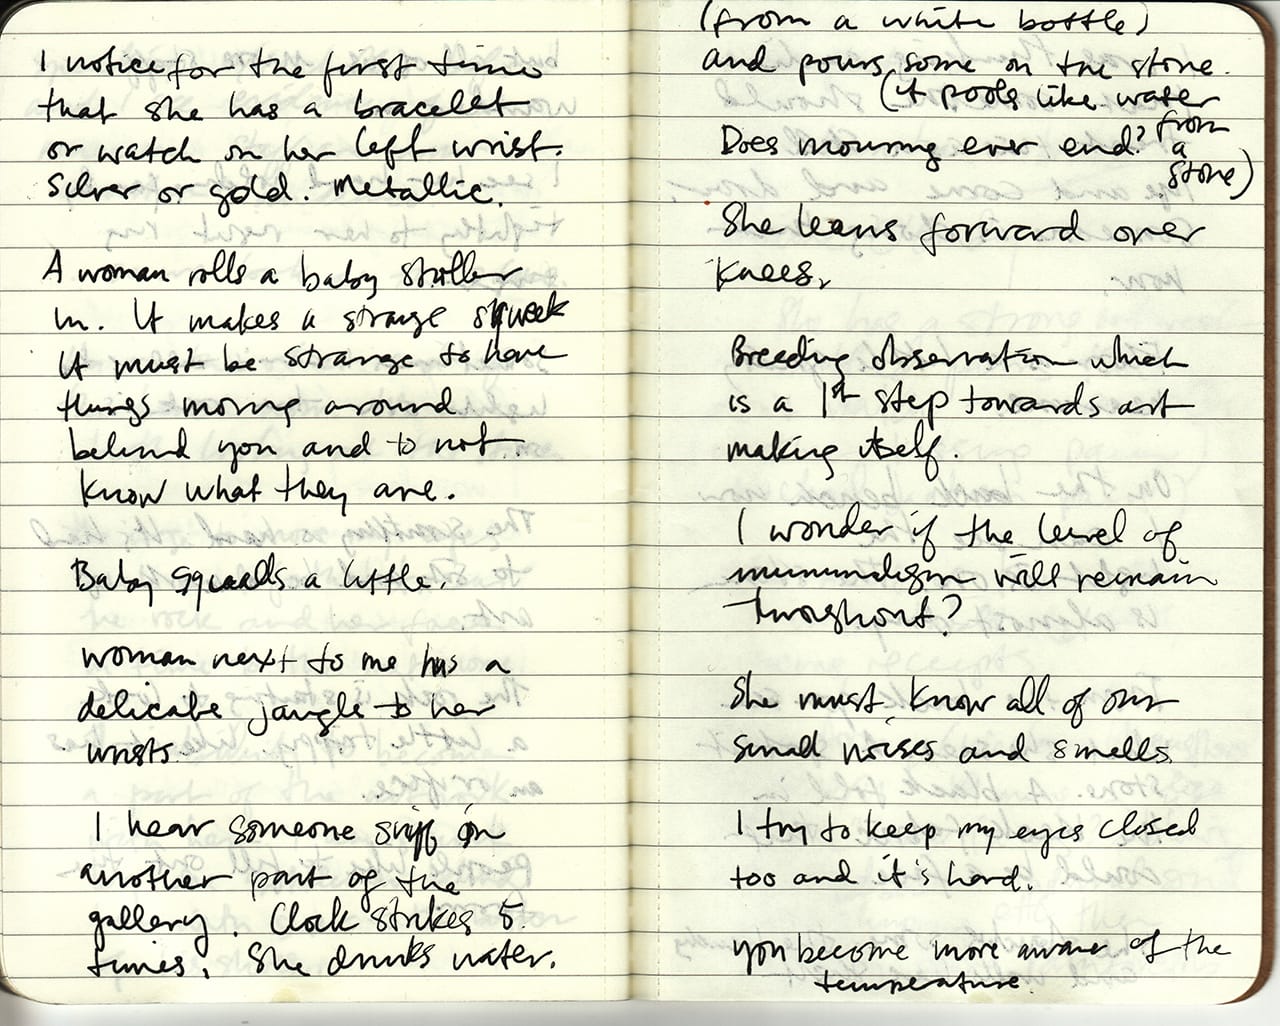 I notice for the first time
that she has a bracelet
or watch on her left wrist.
Silver or gold. Metallic.
A woman rolls a baby stroller
in. It makes a strange squeek
It must be strange to have
things moving around
behind you and to not
know what they are.
Baby squealls a little.
woman next to me has a
delicate jangle to her
wrists.
I hear someone sniff in
another part of the
gallery. Clock strikes 5
times. She drinks water.
(from a white bottle)
and pours some on the stone.
(it pools like water
from
Does mourning ever end? a
stone)
She leans forward over
knees.
Breeding observation which
is a 1st step towards art
making itself.
I wonder if the level of
will remain
throughout?
She must know all of our
small noises and smells.
I try to keep my eyes closed
too and it's hard.
you become more aware of the
temperature.